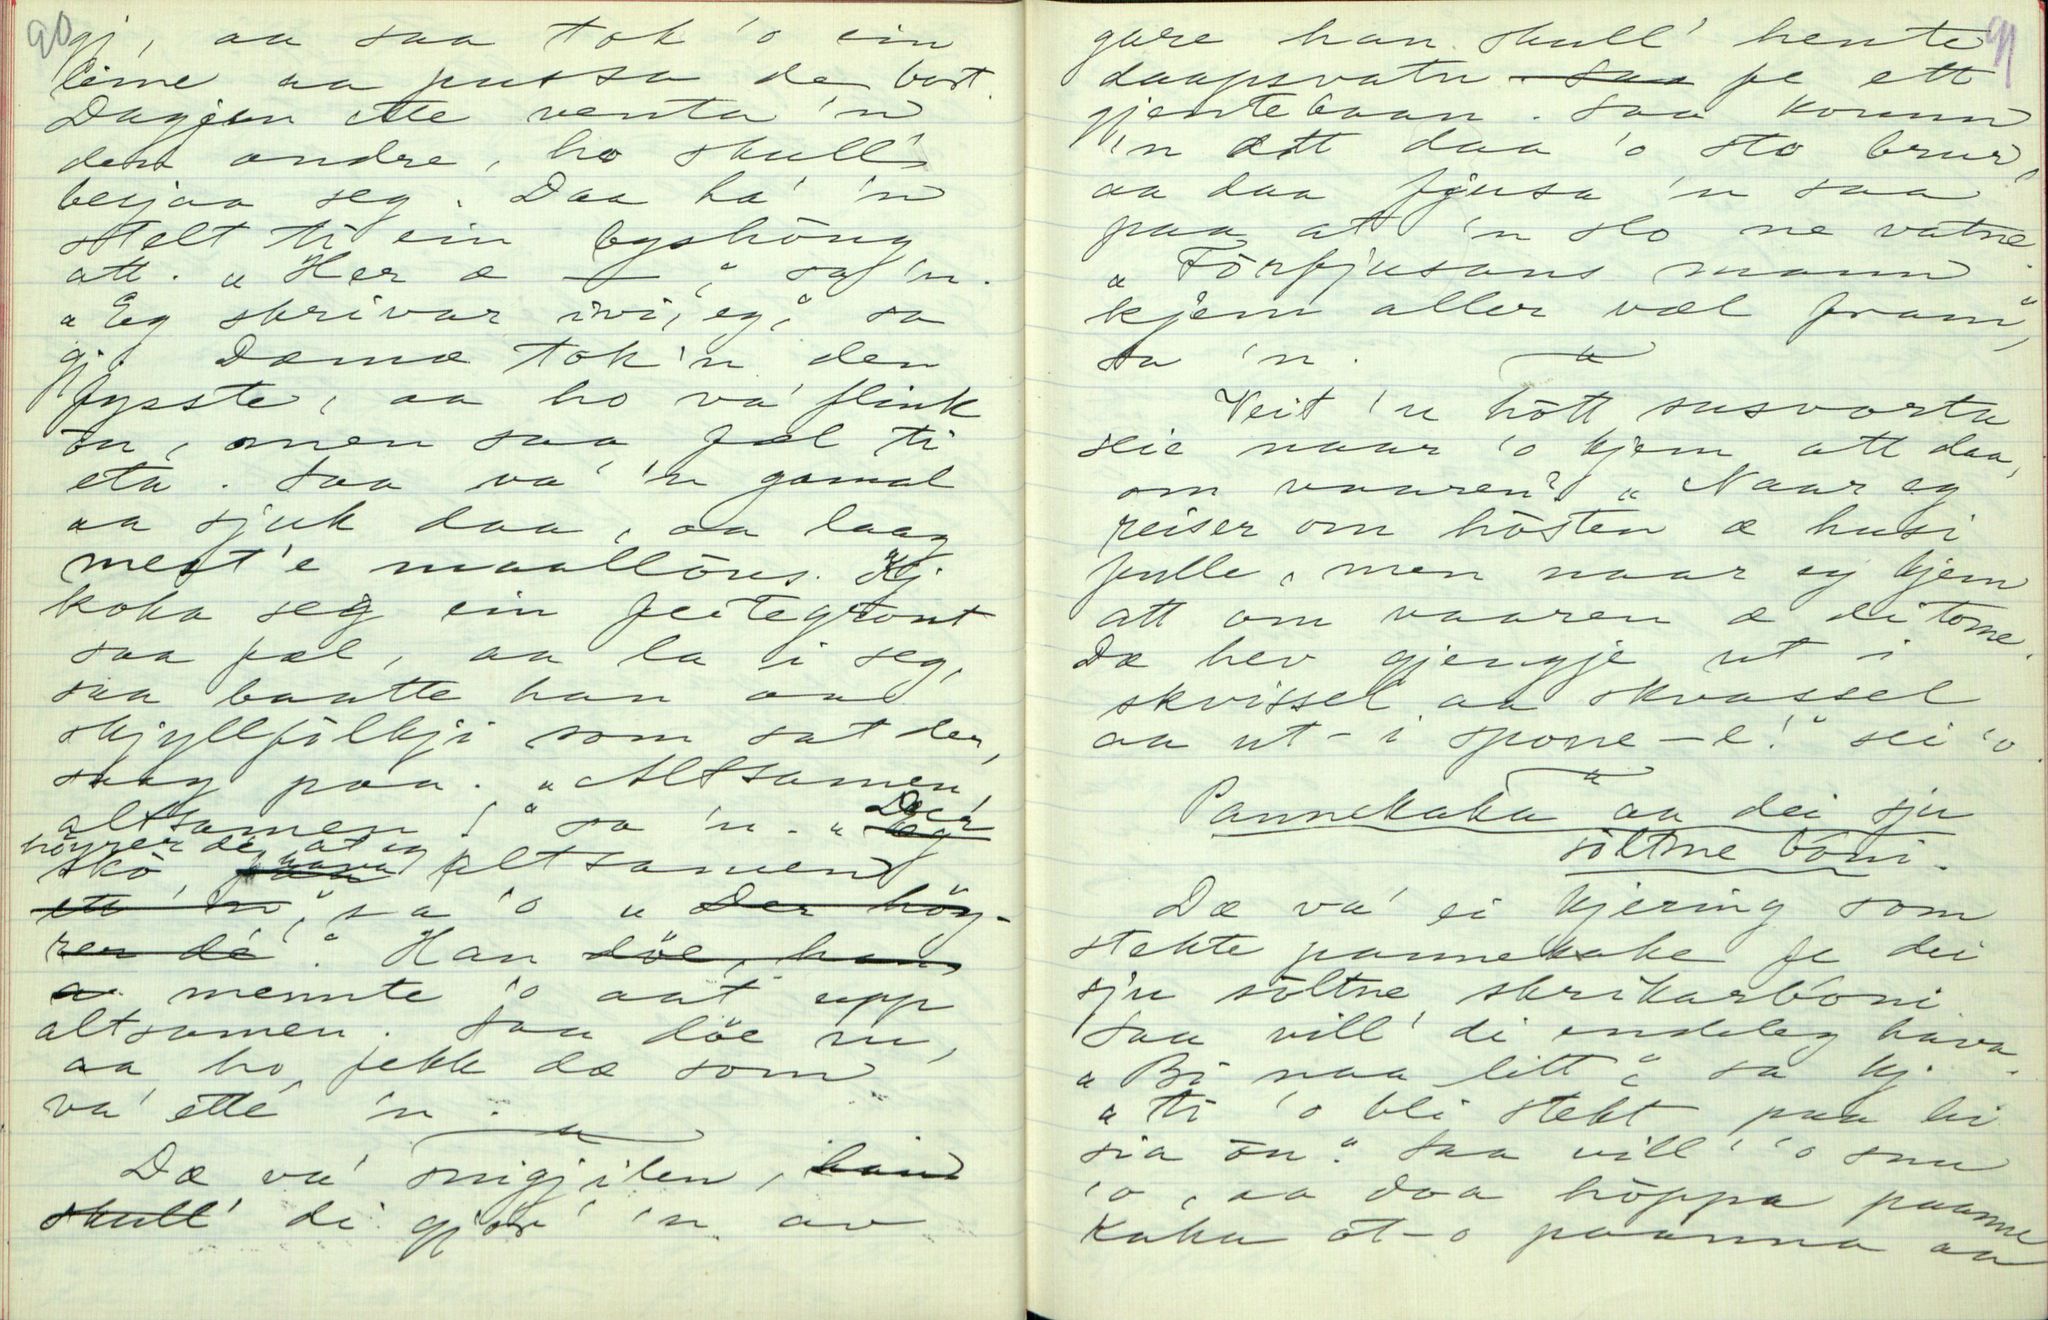 90
gj, aa saa tok 'o ein
lime aa pussa de bort.
Dagjen ette venta 'n
den andre, ho skull'
besjaa seg. Daa ha' 'n
stelt ti ein byshöng
att. „Her æ —", sa 'n.
„Eg skrivar ivi, eg," sa
gj. Dæmæ tok 'n den
fysste, aa ho va' flink
òn, men saa fæl ti
eta. Saa va' 'n gamal
aa sjuk daa, aa laag
mest'e maallöus. Kj.
koka seg ein feitegraut
saa fæl, aa la i seg,
saa baatte han aa
skjyllfölkji som sat der,
saag paa. „Altsamen,
altsamen!" sa 'n. „Dei
höyrer de, at eg
skò hava altsamen
", sa 'o „Der höy-
rer de". Han döe, han
mennte 'o aat upp
altsamen. Saa döe 'n,
aa ho fekk dæ som
va' ette 'n.
Dæ va' snigjilen, han
skull' di gjör' 'n av
91
gare han skull' hente
daapsvatn saa fe ett
gjentebaan. Saa komm
'n att daa 'o sto brur,
aa daa fjusa 'n saa
paa at 'n slo ne vatne.
„Förfjusans mann
kjem aller væl fram",
sa 'n.
Veit 'u hött susvorta
seie naar 'o kjem att daa,
om vaaren? „Naar eg
reiser om hösten æ husi
fulle, men naar eg kjem
att om vaaren æ dei tome.
Dæ hev gjengje ut i
skvissel aa skvassel
aa ut-i spone-e!" sei 'o.
Pannekaka aa dei sju
söltne böni.
Dæ va' ei kjering som
stekte pannekake fe dei
sju söltne skrikarböni
Saa vill' di endeleg hava.
„Bi naa litt", sa kj.
„ti 'o bli stekt paa hi
sia òn." Saa vill' 'o snu
'o, aa daa höppa panne
kaka òt-o paanna aa